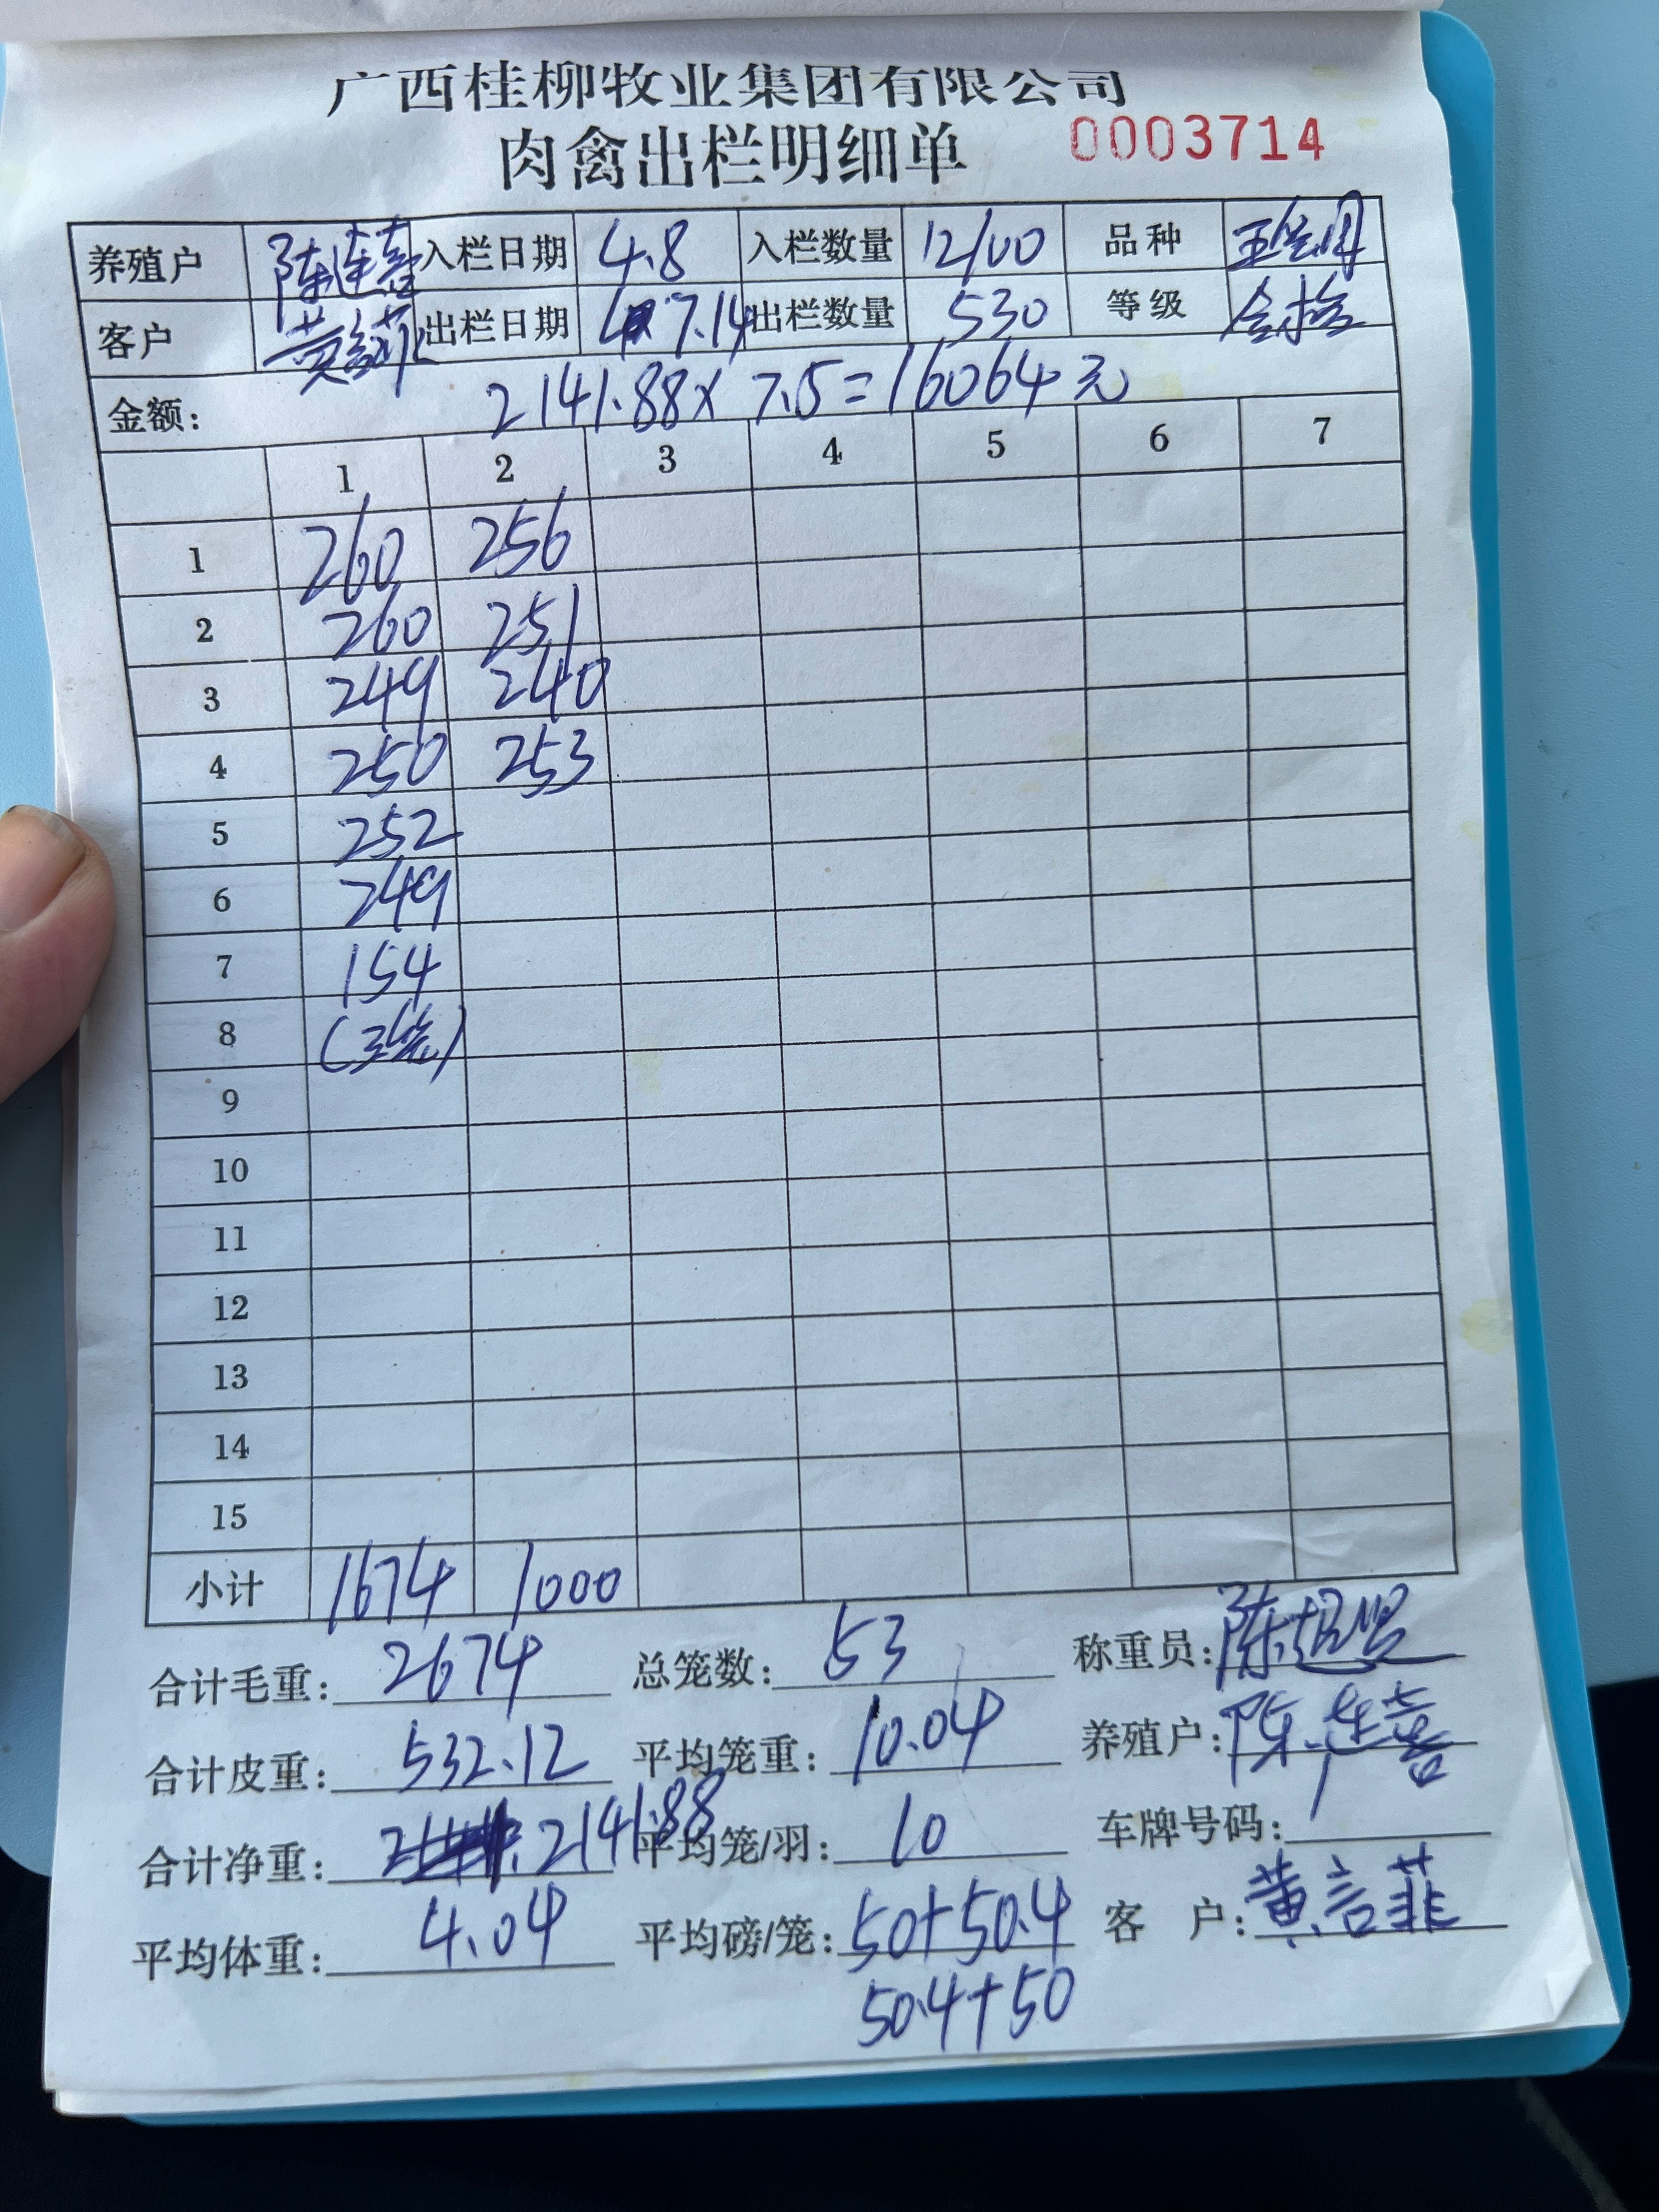 广西桂柳牧业集团有限公司
肉禽出栏明细单 0003714
养殖户 陈连喜 入栏日期 4.8 入栏数量 12100 品种
客户 黄言菲 出栏日期 7.14 出栏数量 530 等级
金额: 2141.88×7.5=16064元
1 2 3 4 5 6 7
1 260 256
2 260 251
3 249 240
4 250 253
5 252
6 249
7 154
8 (3笼)
9
10
11
12
13
14
15
小计 1674 1000
合计毛重: 2674 总笼数: 53 称重员: 陈
合计皮重: 532.12 平均笼重: 10.04 养殖户: 陈连喜
合计净重: 2141.88 平均笼/羽: 10 车牌号码:
平均体重: 4.04 平均磅/笼: 50+50.4 客 户: 黄言菲
50.4+50